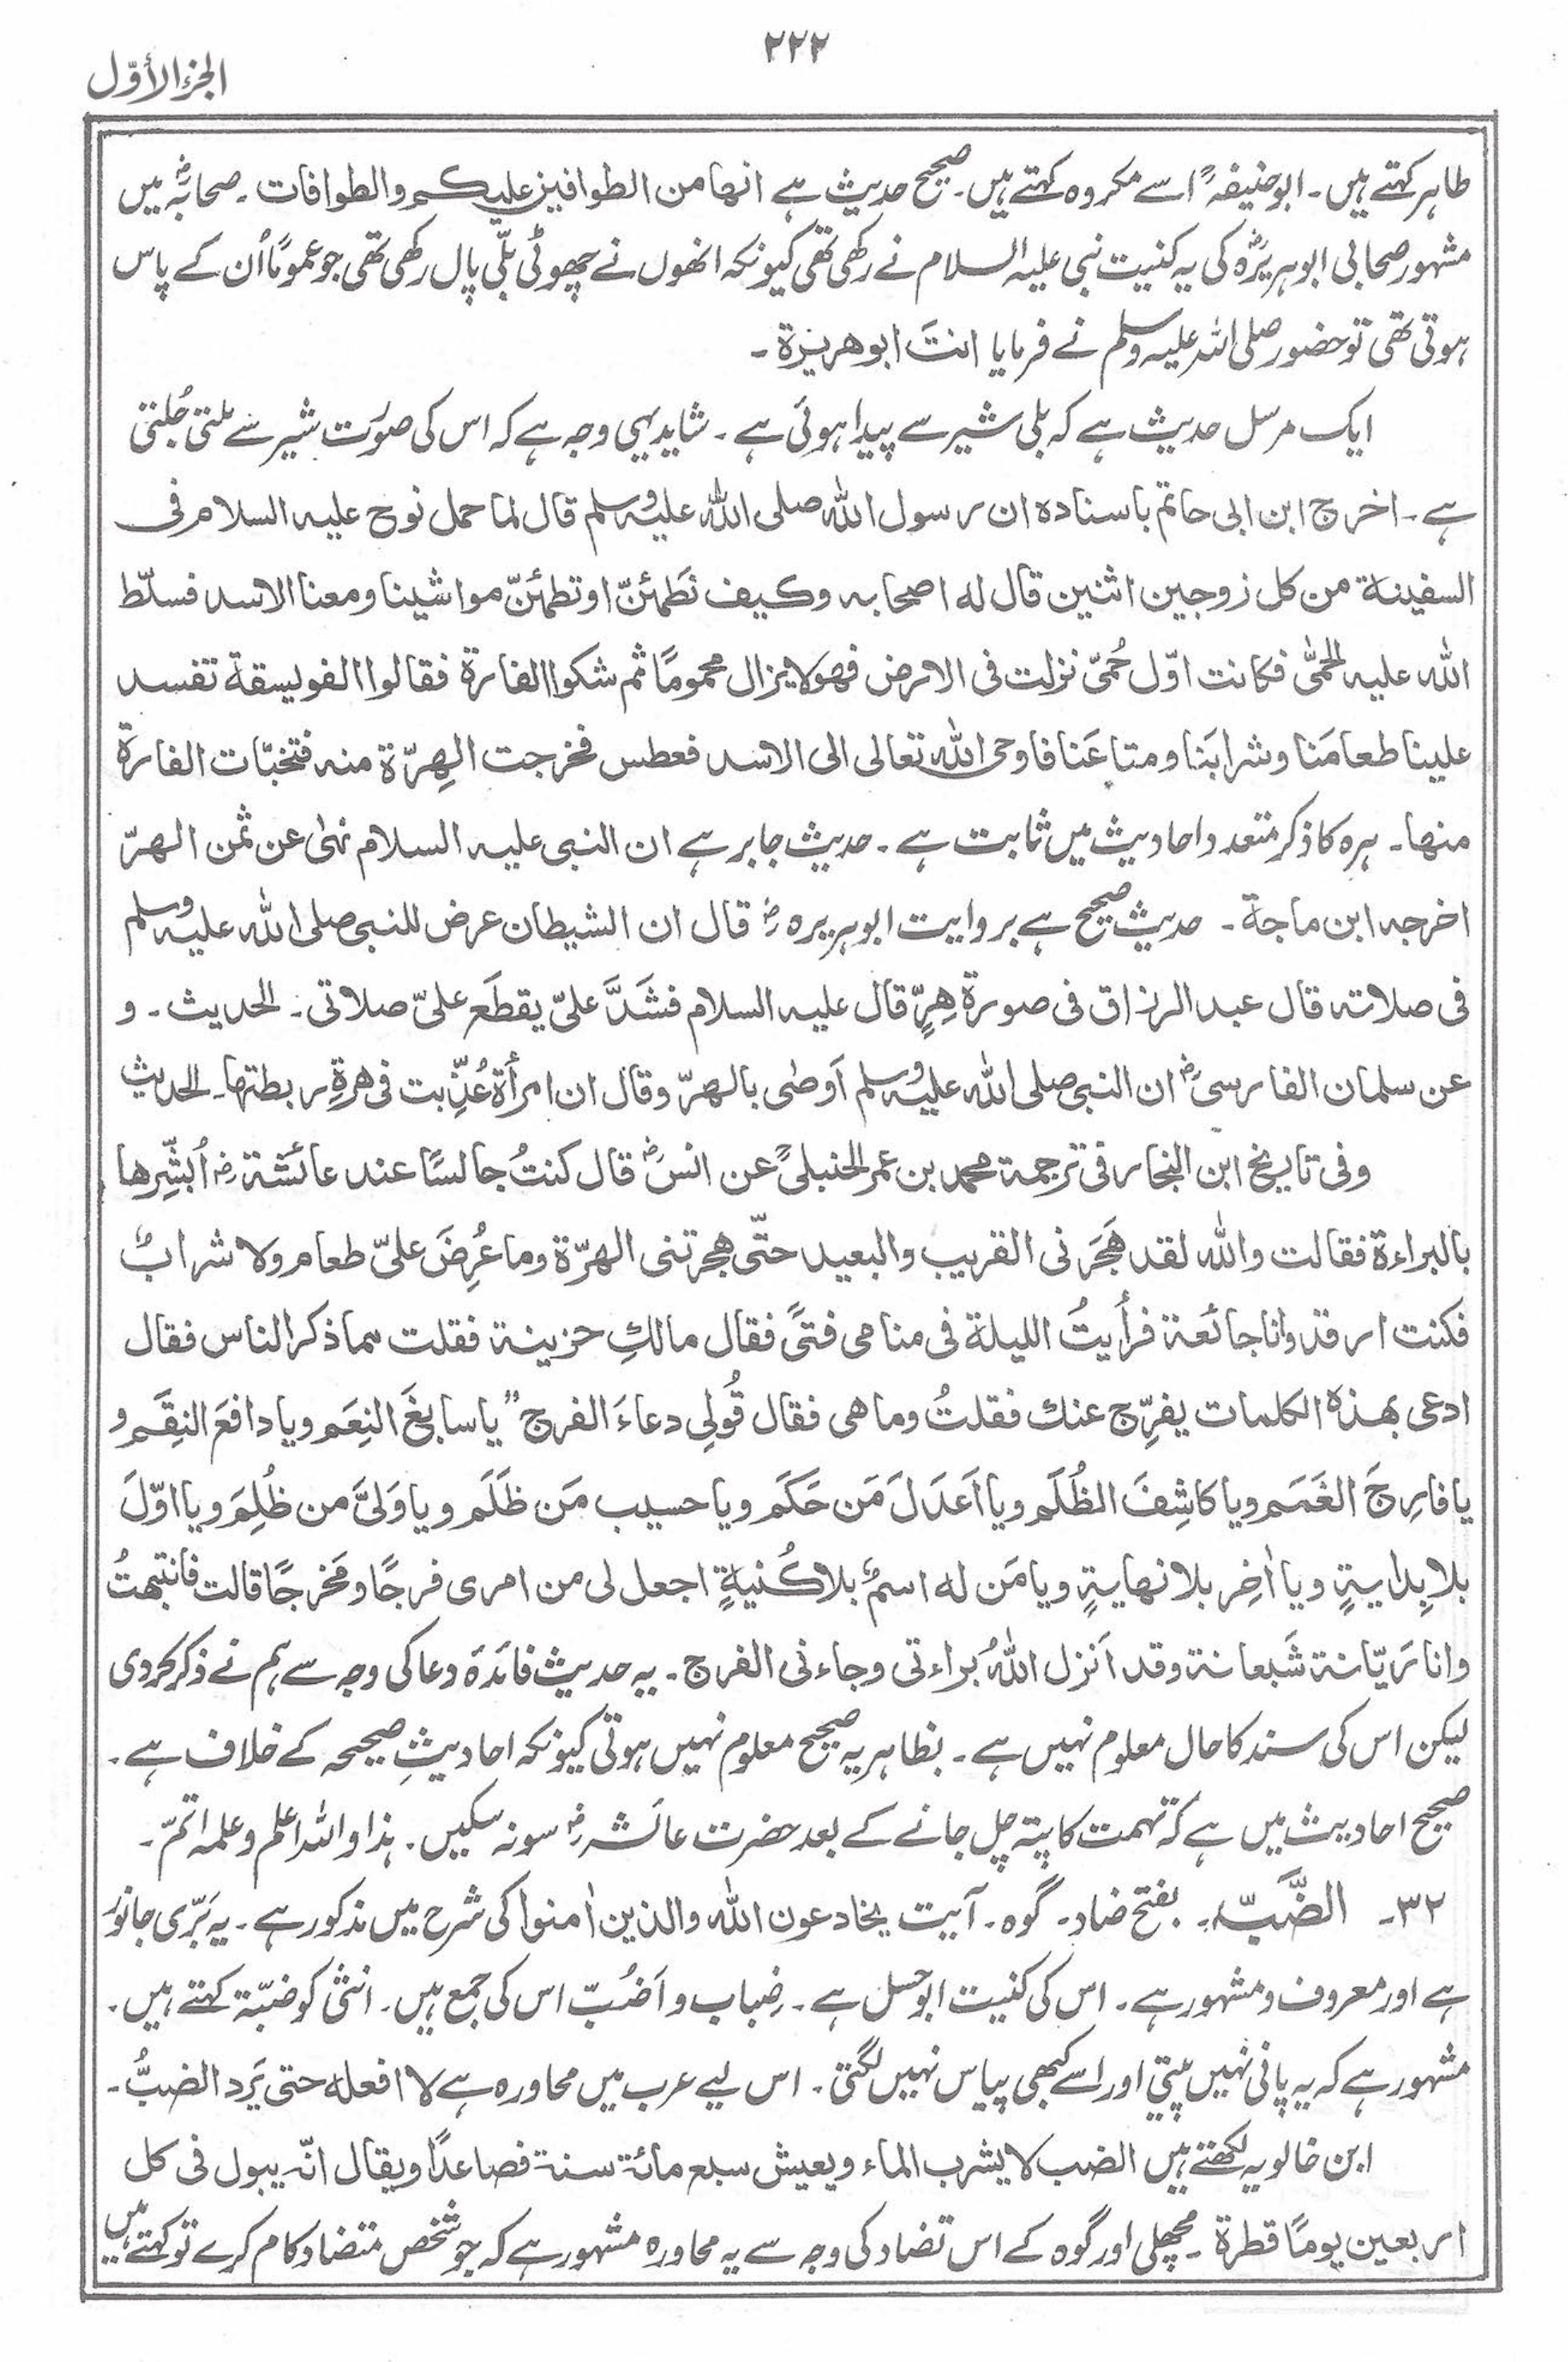 ۲۲۲
الجزء الأوّل
طاہر کہتے ہیں ۔ ابو حنیفہؒ اسے مکروہ کہتے ہیں ۔ صحیح حدیث ہے انها من الطوافین علیکم والطوافات ۔ صحابہؓ میں
مشہور صحابی ابو ہریرہؓ کی یہ کنیت نبی علیہ السلام نے رکھی تھی کیونکہ انھوں نے چھوٹی بلّی پال رکھی تھی جو عموماً اُن کے پاس
ہوتی تھی تو حضور صلی اللہ علیہ وسلم نے فرمایا انتَ ابو هریرة ۔
ایک مرسل حدیث ہے کہ بلی شیر سے پیدا ہوئی ہے ۔ شاید یہی وجہ ہے کہ اس کی صورت شیر سے ملتی جُلتی
ہے ۔ اخرج ابن ابی حاتم باسناده ان رسول الله صلی الله علیه وسلم قال لما حمل نوح علیه السلام فی
السفینة من کل زوجین اثنین قال له اصحابه وکیف نَطمئنّ او تطمئنّ مواشینا ومعنا الاسد فسلّط
الله علیه الحمّٰی فکانت اوّل حُمّیّ نزلت فی الارض فهو لایزال محمومًا ثم شکوا الفارة فقالوا الفویسقة تفسد
علینا طعامَنا وشرابَنا ومتاعَنا فاوحی الله تعالی الی الاسد فعطس فخرجت الهِرّة منه فتخبّات الفارة
منها ۔ ہرہ کا ذکر متعدد احادیث میں ثابت ہے ۔ حدیث جابر ہے ان النبی علیه السلام نهٰی عن ثمن الهرّ
اخرجه ابن ماجة ۔ حدیث صحیح ہے بروایت ابو ہریرہ رضؓ قال ان الشیطان عرض للنبی صلی الله علیه وسلم
فی صلاته قال عبد الرزاق فی صورة هِرٍّ قال علیه السلام فشَدَّ علیّ یقطَع علیّ صلاتی ۔ الحدیث ۔ و
عن سلمان الفارسیؓ ان النبی صلی الله علیه وسلم اَوصٰی بالهرّ وقال ان امرأة عُذِّبت فی هرةٍ ربطتها ۔ الحدیث
وفی تاریخ ابن النجار فی ترجمة محمد بن عمر الحنبلیؒ عن انسؓ قال کنتُ جالسًا عند عائشة رضؓ اُبشِّرها
بالبراءة فقالت والله لقد هَجَرَنی القریب والبعید حتّی هجرتنی الهرّة وما عُرِضَ علیّ طعام ولا شرابٌ
فکنت ارقد وانا جائعة فرأیتُ اللیلة فی منامی فتیً فقال مالكِ حزینة فقلت مما ذکر الناس فقال
ادعی بهذه الکلمات یفرّج عنك فقلتُ وما هی فقال قُولِی دعاءَ الفرج ”یا سابغَ النِعَم ویا دافعَ النِقَم و
یا فارِجَ الغَمَم ویا کاشِفَ الظُلَم ویا اَعدَلَ مَن حَکَم ویا حسیب مَن ظَلَم ویا وَلیَّ من ظُلِمَ ویا اوّلَ
بلا بِدایةٍ ویا اٰخِر بلا نهایةٍ ویا مَن له اسمٌ بلا کُنیةٍ اجعل لی من امری فرجًا ومَخرجًا قالت فانتبهتُ
وانا رَیّانة شَبعانة وقد اَنزل اللهُ براءتی وجاءنی الفرج ۔ یہ حدیث فائدۂ دعا کی وجہ سے ہم نے ذکر کردی
لیکن اس کی سند کا حال معلوم نہیں ہے ۔ بظاہر یہ صحیح معلوم نہیں ہوتی کیونکہ احادیثِ صحیحہ کے خلاف ہے ۔
صحیح احادیث میں ہے کہ تہمت کا پتہ چل جانے کے بعد حضرت عائشہ رضؓ سو نہ سکیں ۔ ہذا واللہ اعلم وعلمہ اتمّ ۔
۳۲ ۔ الضَّبّ ۔ بفتح ضاد ۔ گوہ ۔ آیت یخادعون الله والذین اٰمنوا کی شرح میں مذکور ہے ۔ یہ بَرّی جانور
ہے اور معروف و مشہور ہے ۔ اس کی کنیت ابو حسل ہے ۔ ضِباب و اَضُبّ اس کی جمع ہیں ۔ انثیٰ کو ضبّة کہتے ہیں ۔
مشہور ہے کہ یہ پانی نہیں پیتی اور اسے کبھی پیاس نہیں لگتی ۔ اس لیے عرب میں محاورہ ہے لا افعله حتی یَرد الضبُّ ۔
ابن خالویہ لکھتے ہیں الضب لا یشرب الماء ویعیش سبع مائة سنة فصاعدًا ویقال انّه یبول فی کل
اربعین یومًا قطرة ۔ مچھلی اور گوہ کے اس تضاد کی وجہ سے یہ محاورہ مشہور ہے کہ جو شخص متضاد کام کرے تو کہتے ہیں